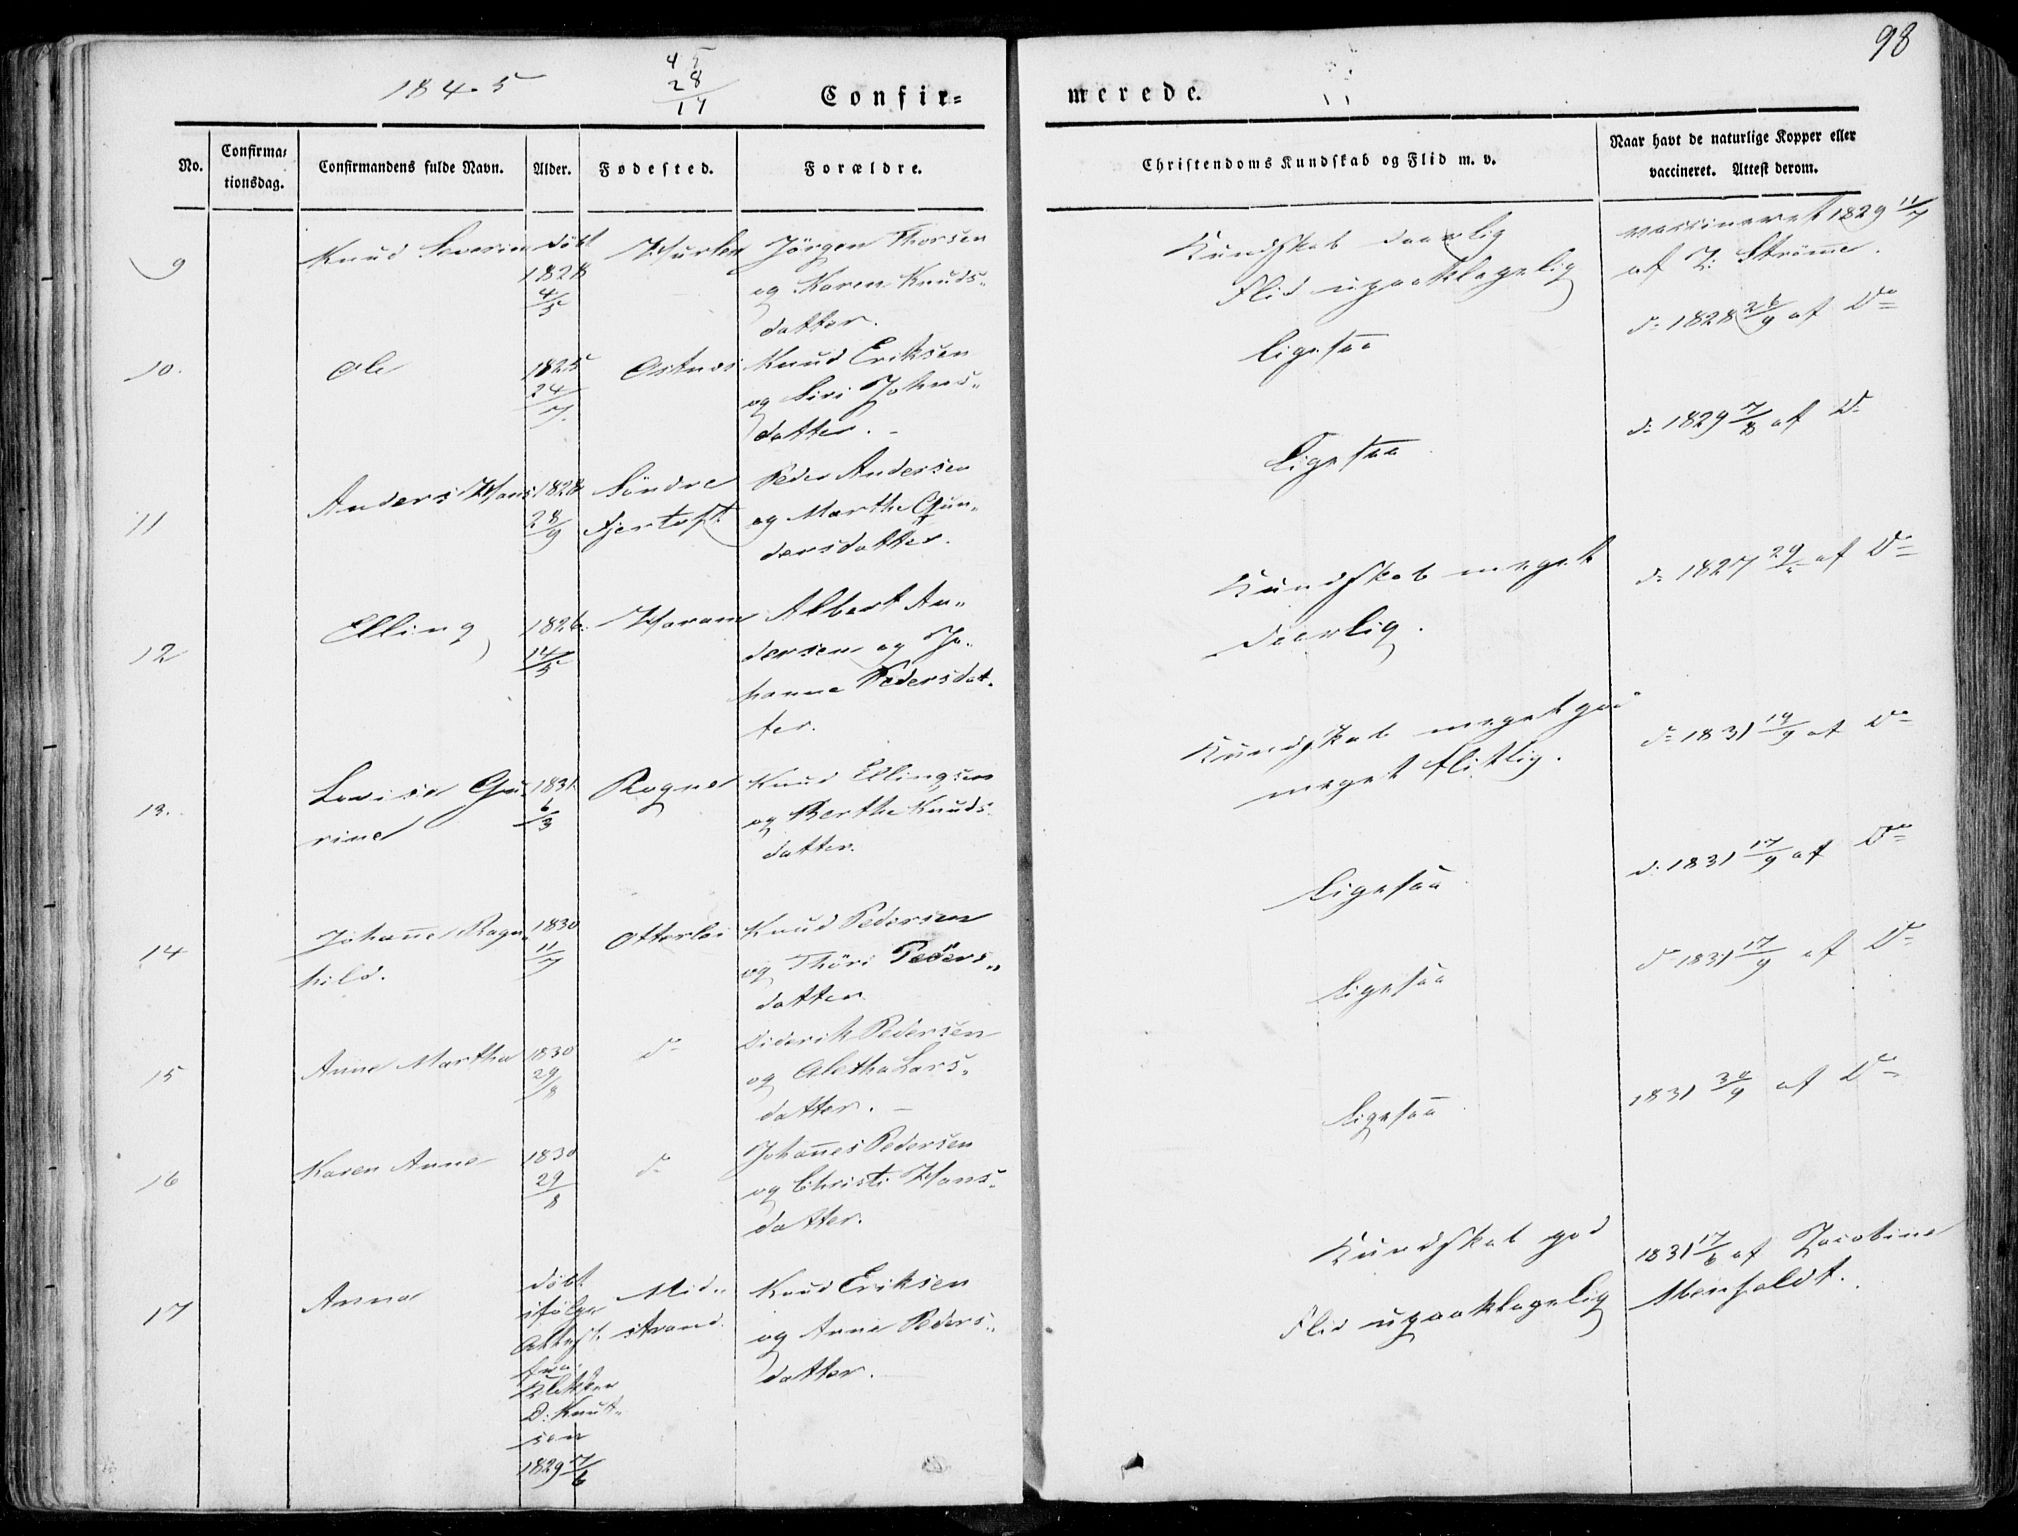 98
1845
45
28
17
Confir=
merede.
No.
Confirma=
tionsdag.
Confirmandens fulde Navn.
Alder.
Fødested.
Forældre.
Christendoms Kundskab og Flid m. v.
Naar havt de naturlige Kopper eller
vaccineret. Attest derom.
9
Knud Severin
døbt
1828
4/5
Jörgen Thorsen
og Karen Knuds-
datter.
Kundskab daarlig
Flid upaaklagelig
vaccineret 1829 11/7
af Strømme.
10.
Ole
1825
24/7.
Ostnæs
Knud Eriksen
og Siri Johns-
datter. -
Ligesaa
d: 1828 26/9 af Do
11
Anders Hans
1828
28/9
Söndre
Fjertoft
Peder Andersen
og Marthe Gun-
dersdatter.
Ligesaa
d: 1829 7/8 af Do
12
Elling
1826.
14/5
Haram
Albert An-
dersen og Jo-
hanne Pedersdat-
ter.
Kundskab meget
daarlig.
d: 1827 af Do
13.
Lovise Gu-
rine
1831
6/3
Rogne
Knud Ellingsen
og Berthe Knuds-
datter.
Kundskab meget god
meget flittig.
d: 1831 af Do
14
Johanne Ragn-
hild.
1830
11/7
Otterlei
Knud Pedersen
og Thöri Peders-
datter
Ligesaa
d: 1831 17/9 af Do
15
Anne Martha
1830
29/8
do
Diderik Pedersen
og Aletha Lars-
datter. -
Ligesaa
d: 1831 17/9 af Do
16
Karen Anne
1830
29/8
do
Johannes Pedersen
og Christi Hans-
datter.
Ligesaa
1831 30/9 af Do
17
Anna
døbt
ifölge
Attest
fra
Klokker
D. Knut-
sen
1829 17/6
Mid-
strand.
Knud Eriksen
og Anne Peders-
datter.
Kundskab god
Flid upaaklagelig
1831 17/6 af Jacobine